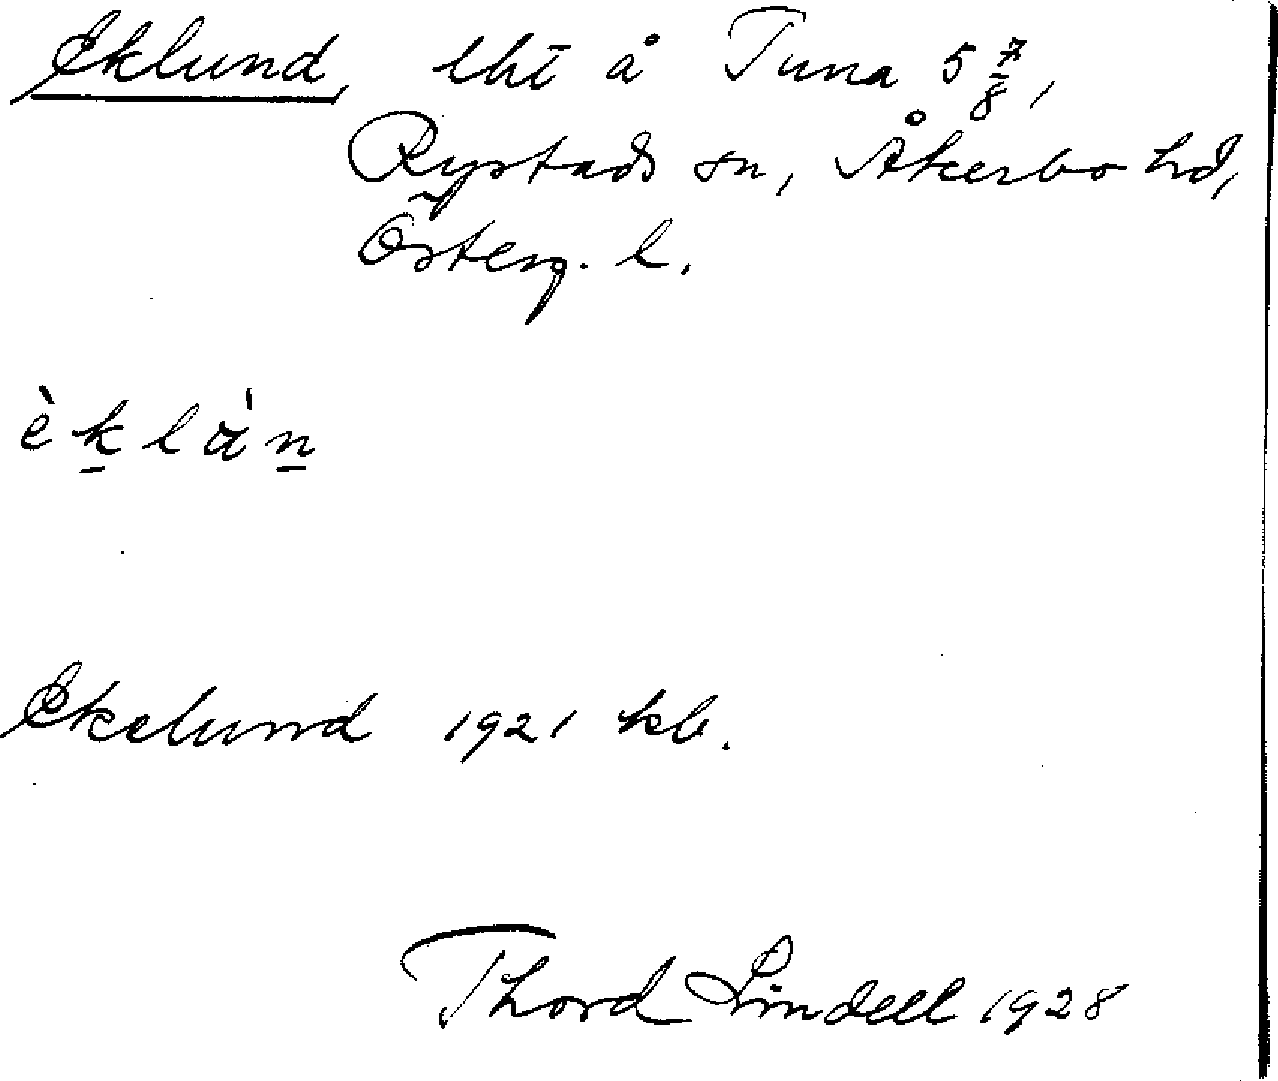 Eklund, lht å Tuna 5 7/8,
Rystads sn, Åkerbo hd,
Österg. l.
èk̲làn̲
Ekelund 1921 kb.
Thord Lindell 1928